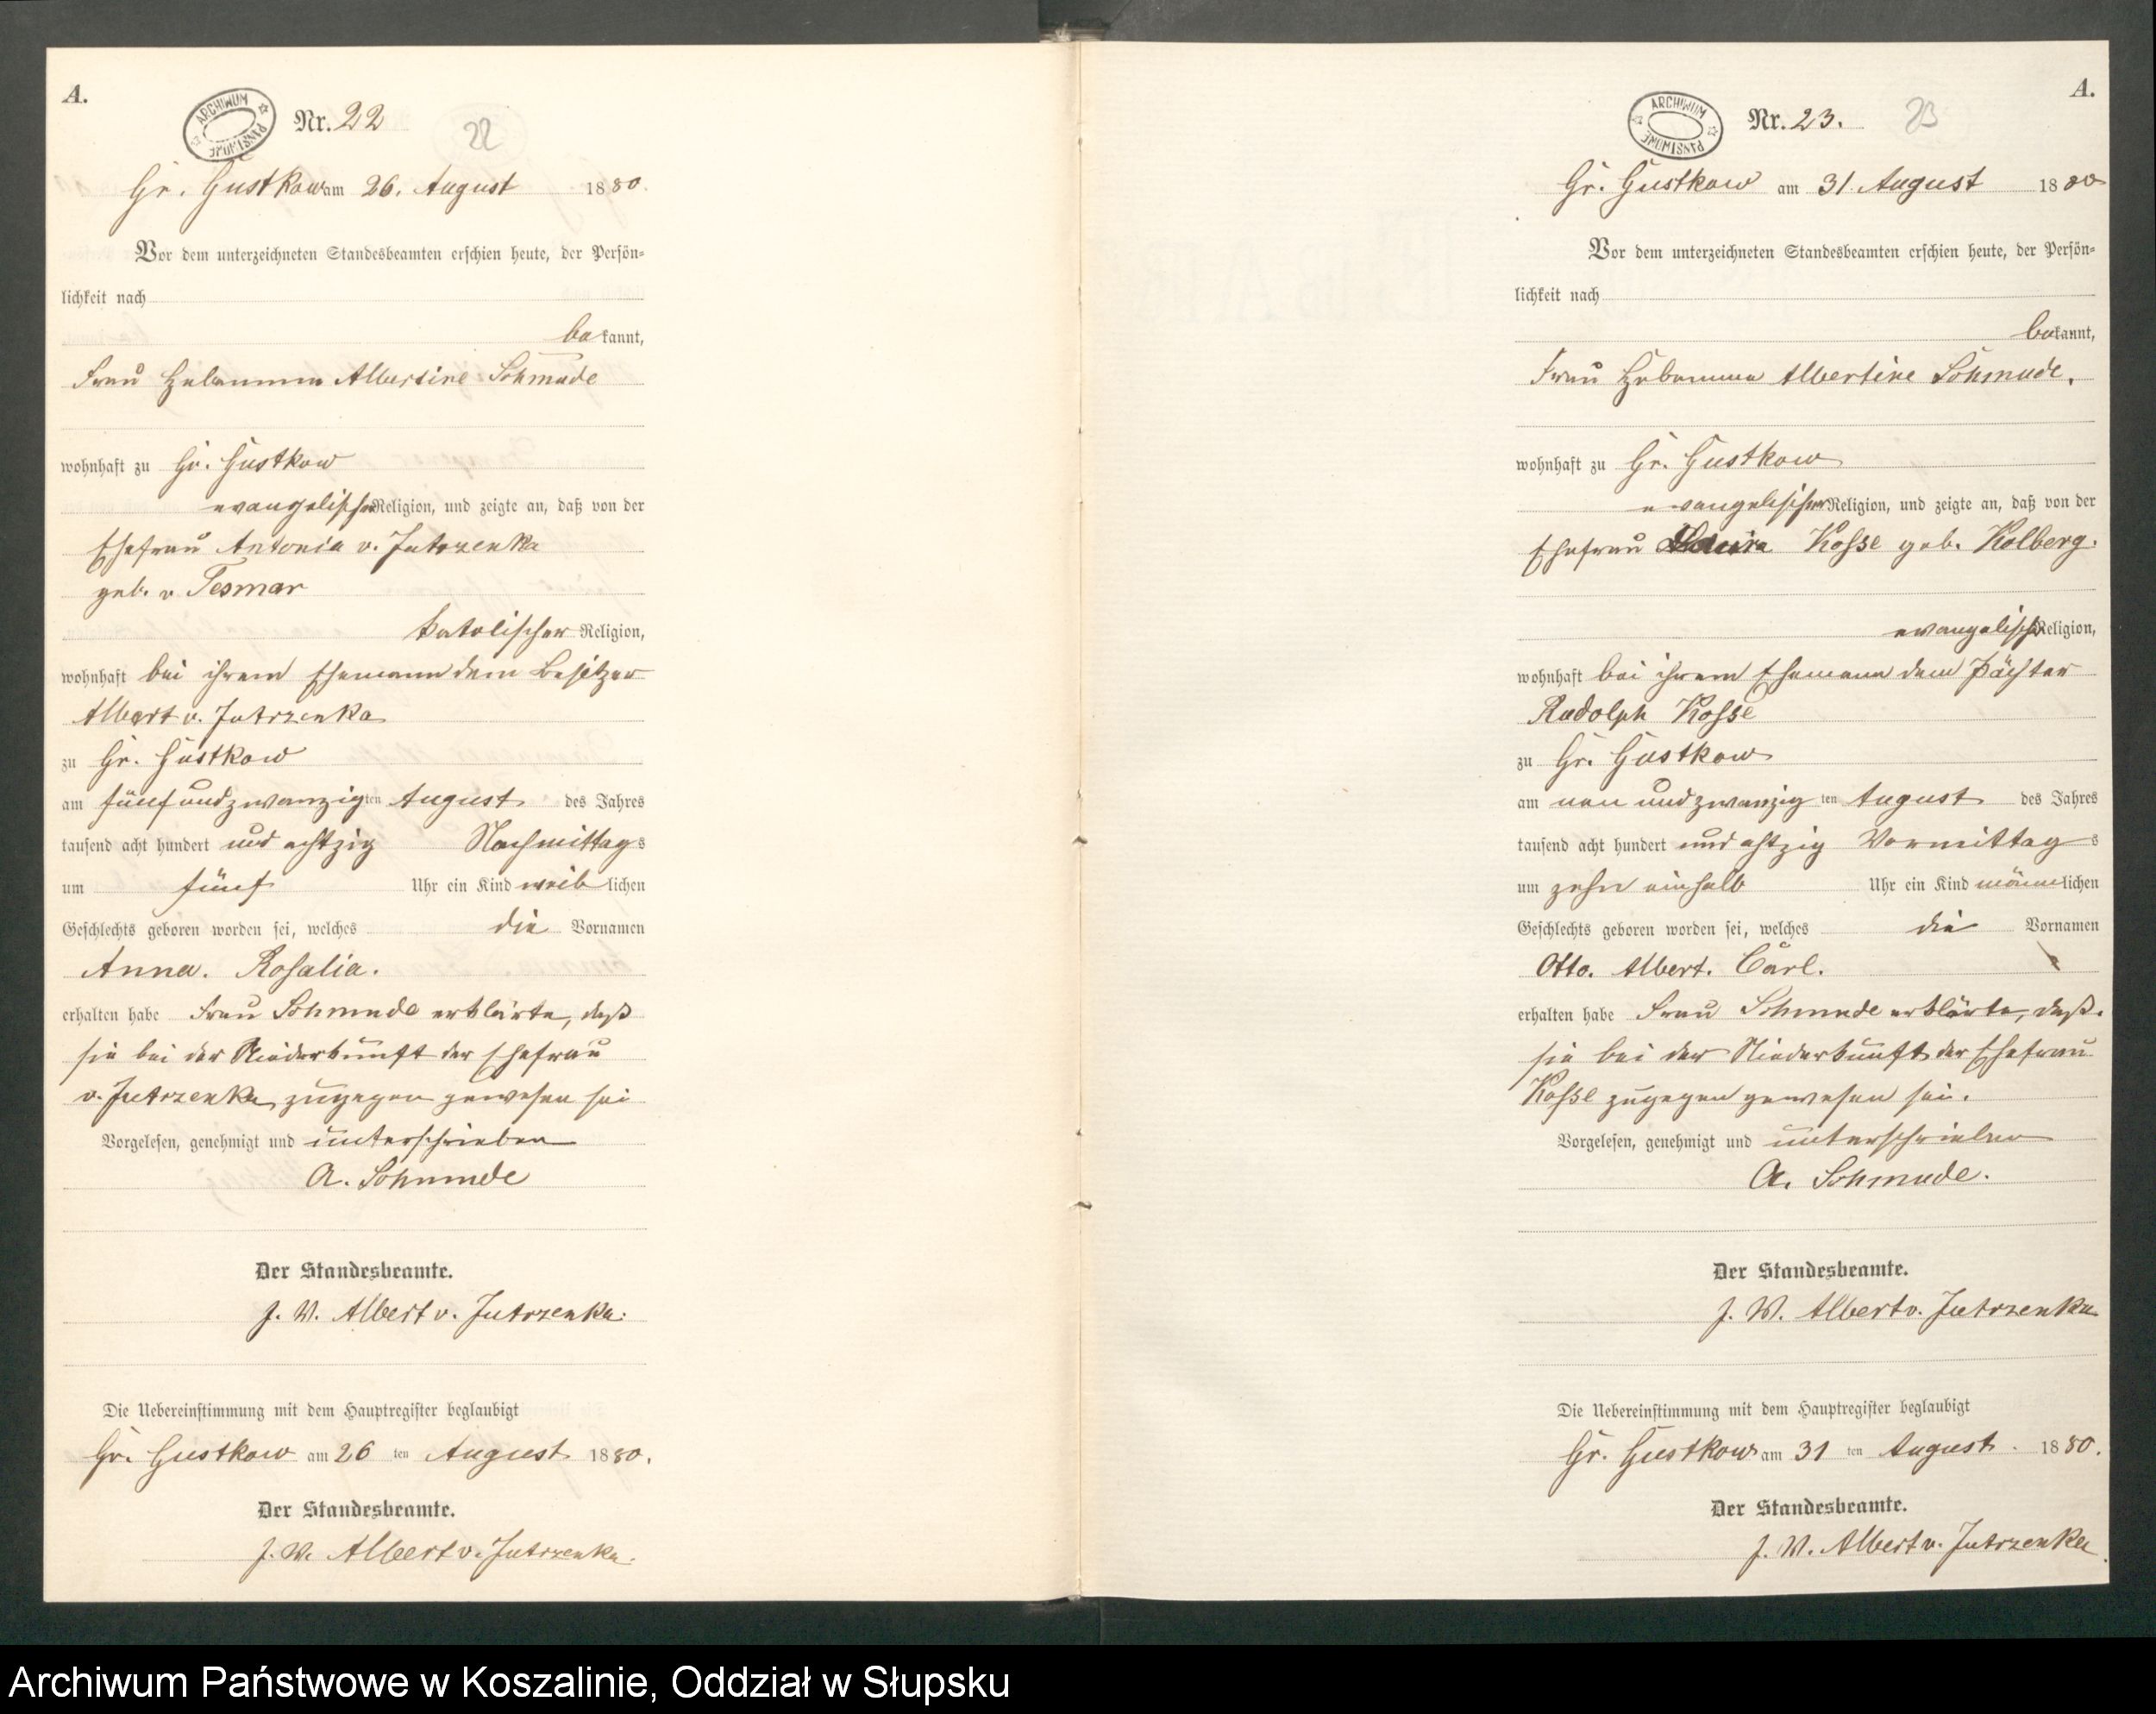 A.
ARCHIWUM PAŃSTWOWE
Nr. 22
22
Gr. Gustkow am 26. August 1880.
Vor dem unterzeichneten Standesbeamten erschien heute, der Persön-
lichkeit nach
bekannt,
Frau Hebamme Albertine Schmude
wohnhaft zu Gr. Gustkow
evangelischer Religion, und zeigte an, daß von der
Ehefrau Antonia v. Jutrzenka
geb. v Tesmar
katolischer Religion,
wohnhaft bei ihrem Ehemann dem Besitzer
Albert v. Jutrzenka
zu Gr. Gustkow
am fünfundzwanzigten August des Jahres
tausend acht hundert und achtzig Nachmittags
um fünf Uhr ein Kind weiblichen
Geschlechts geboren worden sei, welches die Vornamen
Anna. Rosalia.
erhalten habe Frau Schmude erklärte, daß
sie bei der Niederkunft der Ehefrau
v. Jutrzenka zugegen gewesen sei
Vorgelesen, genehmigt und unterschrieben
A. Schmude
Der Standesbeamte.
J. V. Albert v. Jutrzenka.
Die Uebereinstimmung mit dem Hauptregister beglaubigt
Gr. Gustkow am 26 ten August 1880.
Der Standesbeamte.
J. V. Albert v. Jutrzenka.
A.
ARCHIWUM PAŃSTWOWE
Nr. 23.
23
Gr. Gustkow am 31. August 1880
Vor dem unterzeichneten Standesbeamten erschien heute, der Persön-
lichkeit nach
bekannt,
Frau Hebamme Albertine Schmude.
wohnhaft zu Gr. Gustkow
evangelischer Religion, und zeigte an, daß von der
Ehefrau Kosse geb. Kolberg.
evangelischer Religion,
wohnhaft bei ihrem Ehemann dem Pächter
Rudolph Kosse
zu Gr. Gustkow
am neunundzwanzig ten August des Jahres
tausend acht hundert und achtzig Vormittags
um zehn einhalb Uhr ein Kind männlichen
Geschlechts geboren worden sei, welches die Vornamen
Otto. Albert. Carl.
erhalten habe Frau Schmude erklärte, daß.
sie bei der Niederkunft der Ehefrau
Kosse zugegen gewesen sei.
Vorgelesen, genehmigt und unterschrieben
A. Schmude.
Der Standesbeamte.
J. V. Albert v. Jutrzenka
Die Uebereinstimmung mit dem Hauptregister beglaubigt
Gr. Gustkow am 31 ten August. 1880.
Der Standesbeamte.
J. V. Albert v. Jutrzenka.
Archiwum Państwowe w Koszalinie, Oddział w Słupsku